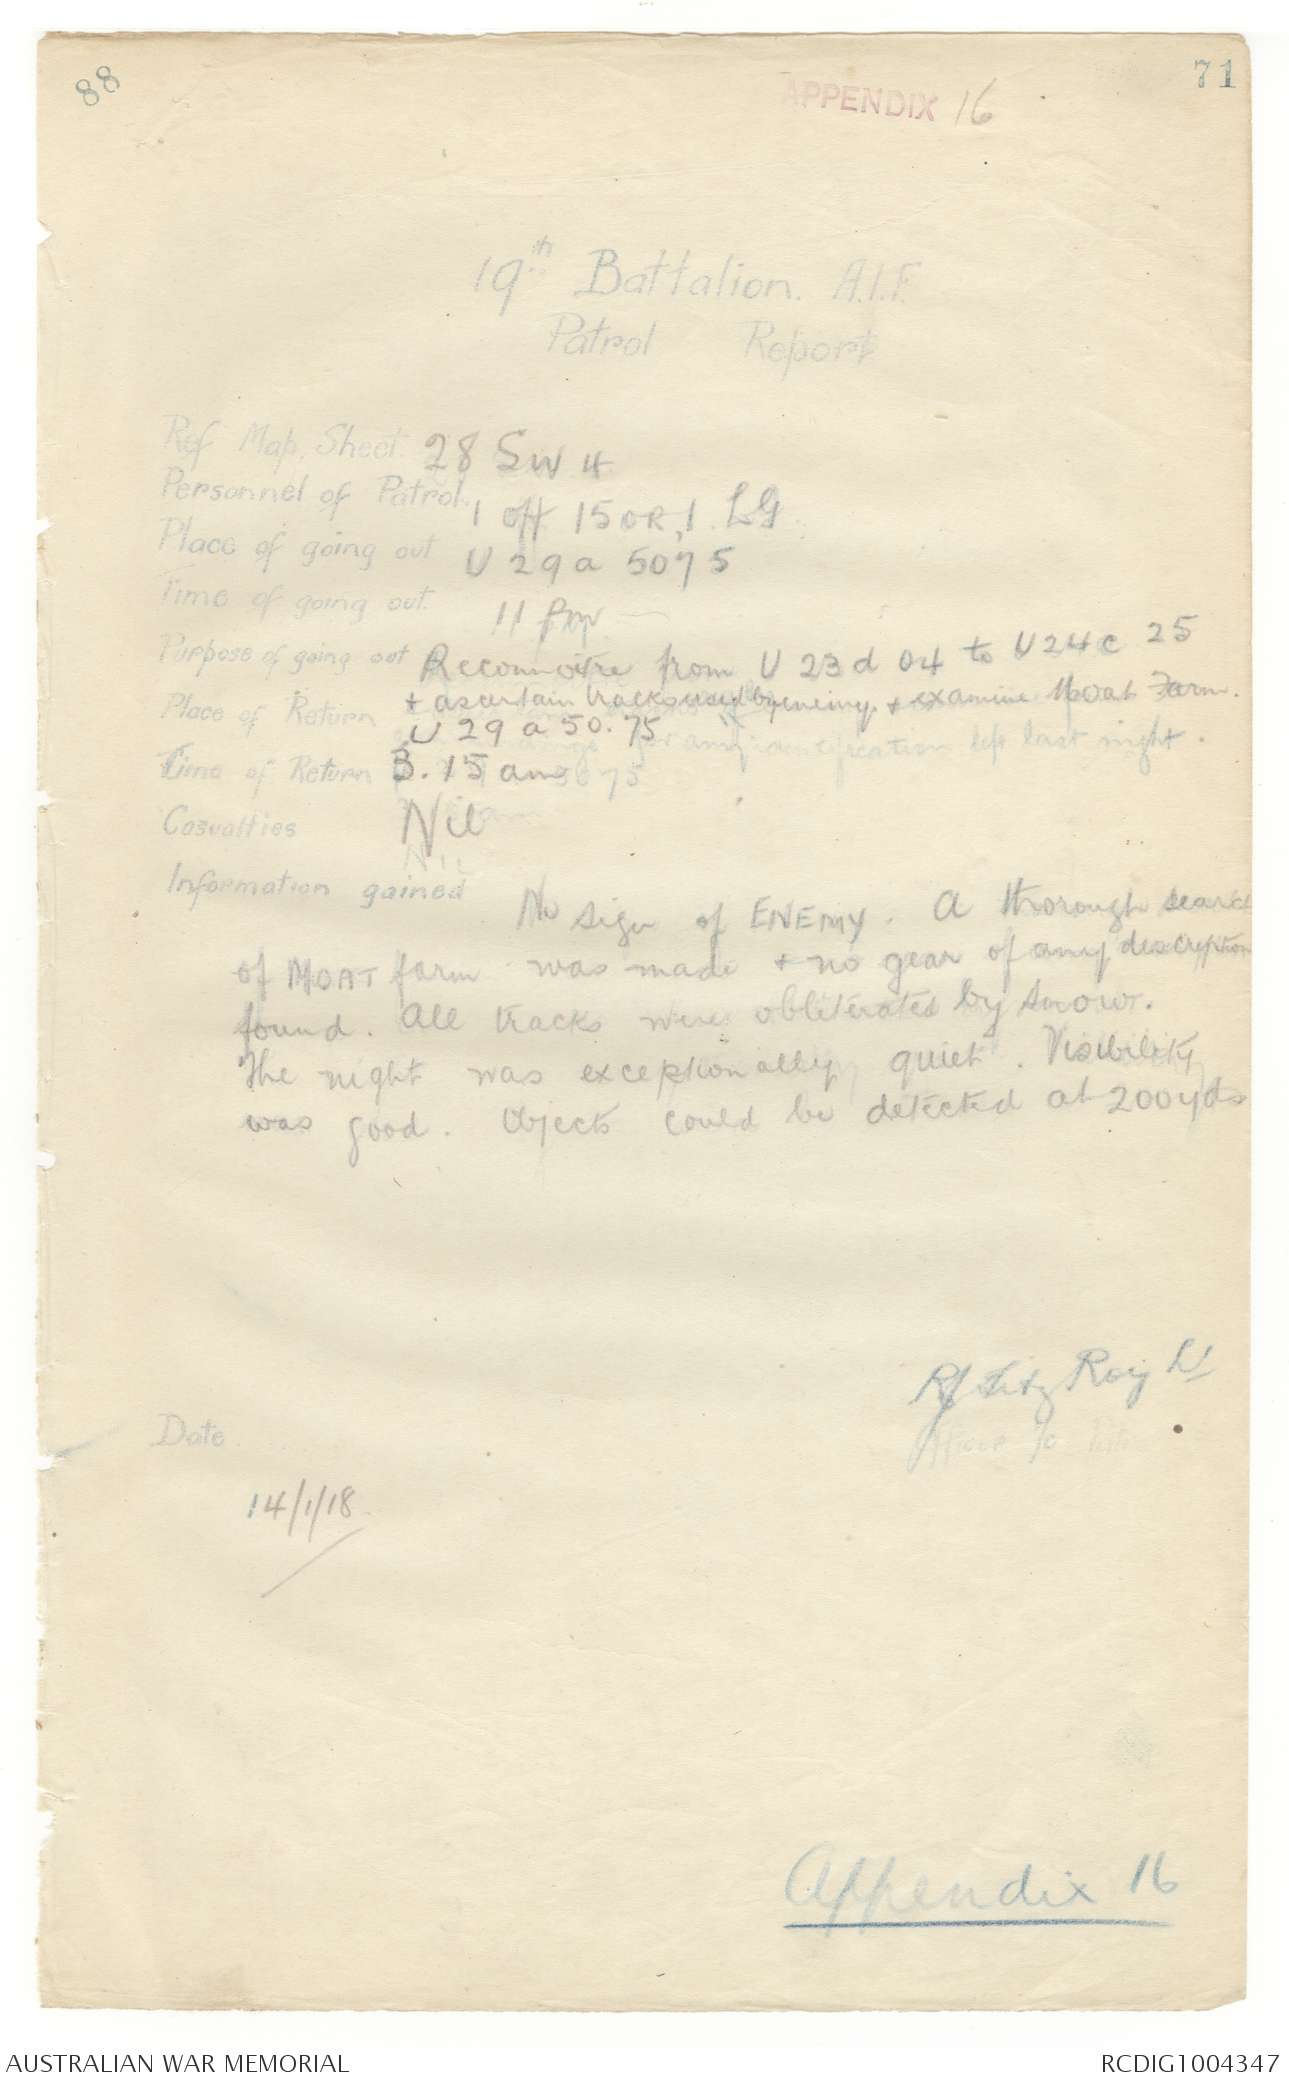 88
71
APPENDIX 16
19th Battalion. A.I.F.
Patrol Report
Ref Map, Sheet. 28 SW 4
Personnel of Patrol. 1 Off 15 OR, 1 LG
Place of going out U 29 a 5075
Time of going out. 11 pm —
Purpose of going out Reconnoitre from U 23 d 04 to U 24 c 25
+ ascertain tracks used by enemy + examine Moat Farm.
for any identification left last night.
Place of Return U 29 a 50.75
Time of Return 3.15 am
Casualties Nil
Information gained No sign of ENEMY. A thorough search
of MOAT farm was made + no gear of any description
found. All tracks were obliterated by snow.
The night was exceptionally quiet. Visibility
was good. Objects could be detected at 200 yds
RJ Fitz Roy Lt
Officer i/c
Date
14/1/18
Appendix 16
AUSTRALIAN WAR MEMORIAL
RCDIG1004347